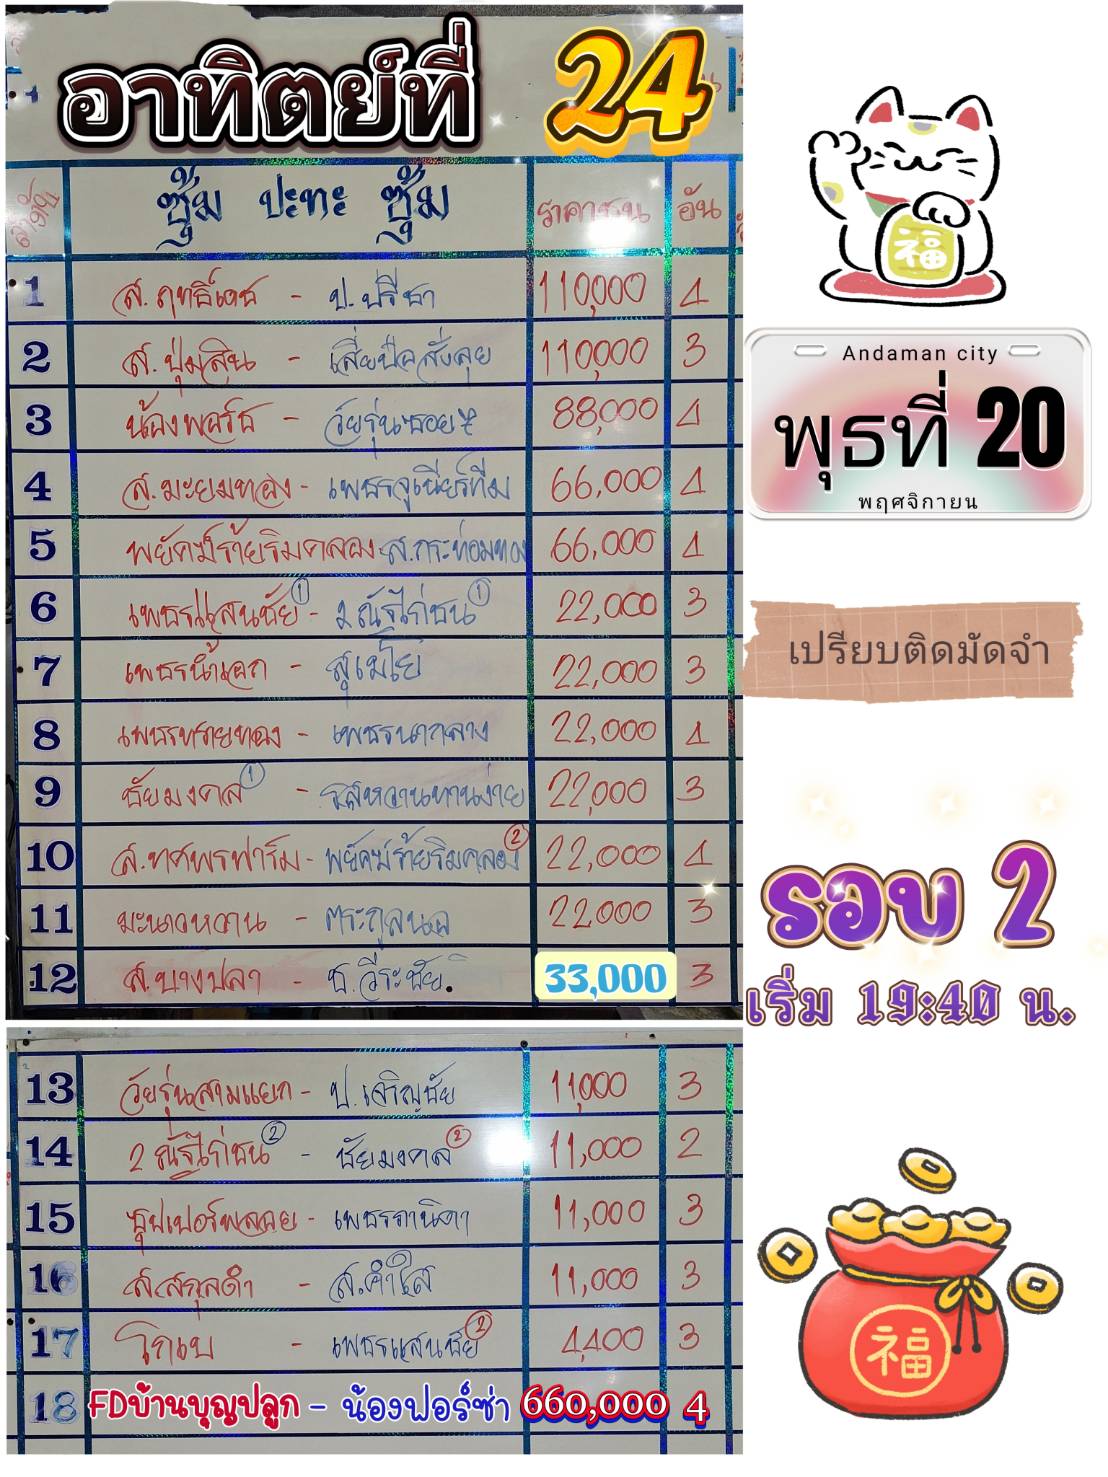 อาทิตย์ที่ 24
ลำดับ ซุ้ม ปะทะ ซุ้ม ราคาชน อัน
1 ส.ฤทธิ์เดช - ป.ปรีชา 110,000 4
2 ส.ปุ่มสิน - เสี่ยปอสั่งลุย 110,000 3
3 น้องพอร์ช - วัยรุ่นซอย 88,000 4
4 ส.มะยมทอง - เพชรจูเนียร์ทีม 66,000 4
5 พยัคฆ์ร้ายริมคลอง - ส.กระท่อมทอง 66,000 4
6 เพชรแสนชัย ① - 2 ณัฐไก่ชน ① 22,000 3
7 เพชรน้ำเอก - สุเมโย 22,000 3
8 เพชรทรายทอง - เพชรนากลาง 22,000 4
9 ชัยมงคล ① - รสหวานทานง่าย 22,000 3
10 ส.ทศพรฟาร์ม - พยัคฆ์ร้ายริมคลอง ② 22,000 4
11 มะนาวหวาน - ตระกูลนอ 22,000 3
12 ส.บางปลา - ช.วีระชัย. 33,000 3
13 วัยรุ่นสามแยก - ป.เจริญชัย 11,000 3
14 2 ณัฐไก่ชน ② - ชัยมงคล ② 11,000 2
15 ซุปเปอร์พลอย - เพชรภานิดา 11,000 3
16 ส.สกุลดำ - ส.คำใส 11,000 3
17 โกเบ - เพชรแสนชัย ② 4,400 3
18 FDบ้านบุญปลูก - น้องฟอร์ซ่า 660,000 4
福
Andaman city
พุธที่ 20
พฤศจิกายน
เปรียบติดมัดจำ
รอบ 2
เริ่ม 19:40 น.
福